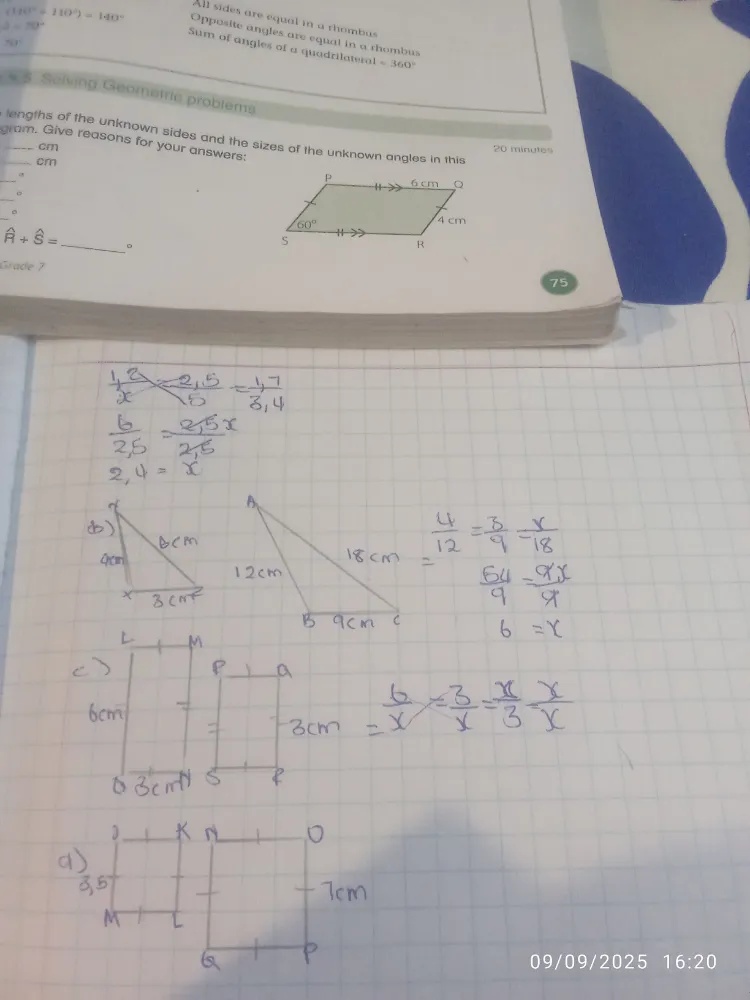 (110° + 110°) = 140°
= 70°
70°
All sides are equal in a rhombus
Opposite angles are equal in a rhombus
Sum of angles of a quadrilateral = 360°
Solving Geometric problems
20 minutes
lengths of the unknown sides and the sizes of the unknown angles in this
gram. Give reasons for your answers:
cm
cm
°
°
°
R̂ + Ŝ = ______ °
P 6 cm Q
60° 4 cm
S R
Grade 7
75
1,2/x = 2,5/5 = 1,7/3,4
6/2,5 = 2,5x/2,5
2,4 = x
b)
4cm
6cm
3cm
A
12cm
18cm
B 9cm C
4/12 = 3/9 = x/18
=
54/9 = 9x/9
6 = x
c)
L M
P Q
6cm
3cm
O 3cm N S R
= 6/x = 3/x = x/3 = x/x
d)
J K N O
3,5
7cm
M L
Q P
09/09/2025 16:20